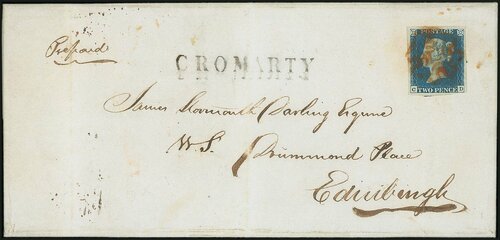 Prepaid
CROMARTY
POSTAGE
C D
TWO PENCE
James Stormonth Darling Esquire
W.S.
Drummond Place
Edinburgh